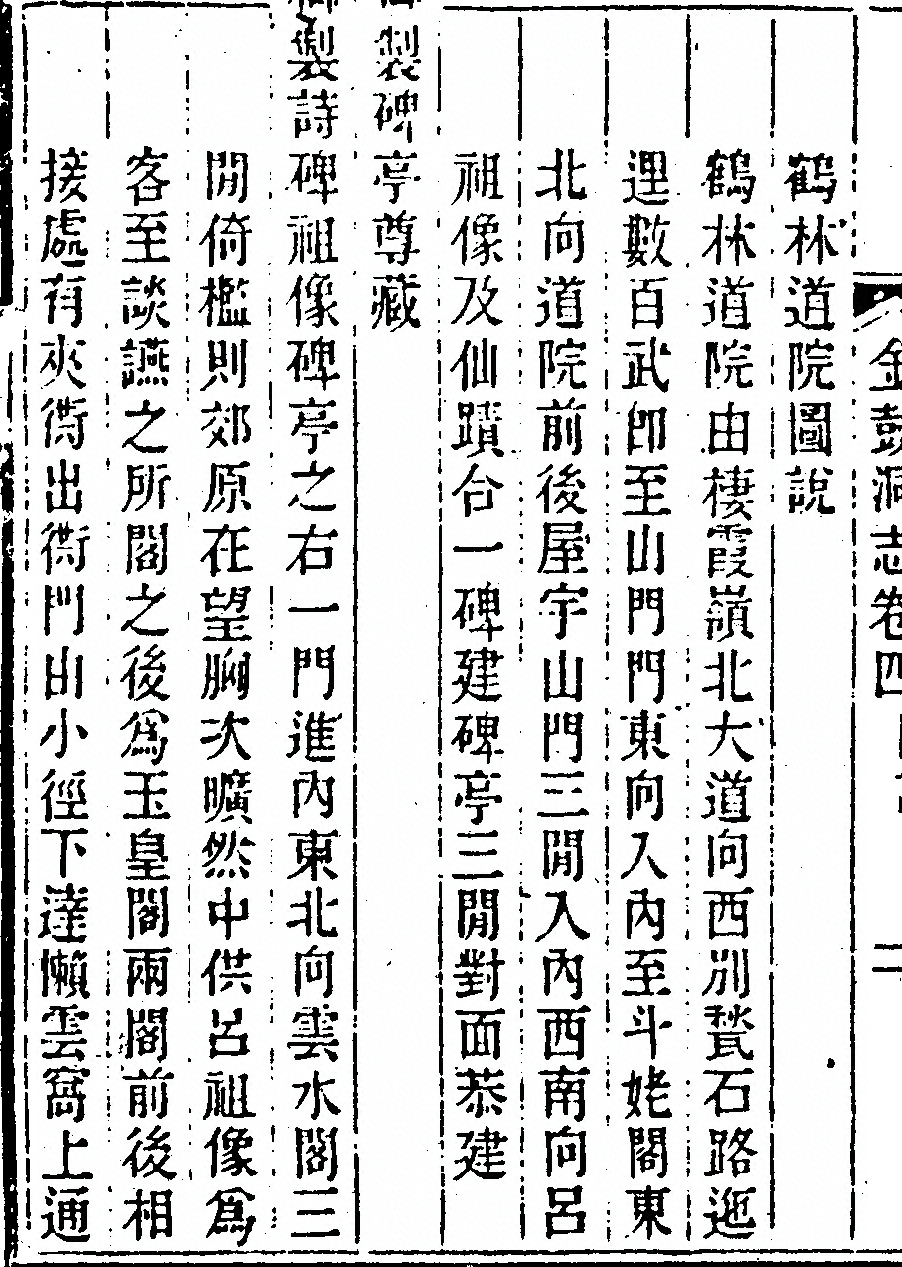 金鼓洞志卷四
二
鶴林道院圖說
鶴林道院由棲霞嶺北大道向西別甃石路迤
邐數百武卽至山門門東向入內至斗姥閣東
北向道院前後屋宇山門三閒入內西南向呂
祖像及仙蹟合一碑建碑亭三閒對面恭建
製碑亭尊藏
御製詩碑祖像碑亭之右一門進內東北向雲水閣三
閒倚檻則郊原在望胸次曠然中供呂祖像爲
客至談讌之所閣之後爲玉皇閣兩閣前後相
接處有夾衖出衖門由小徑下達懶雲窩上通